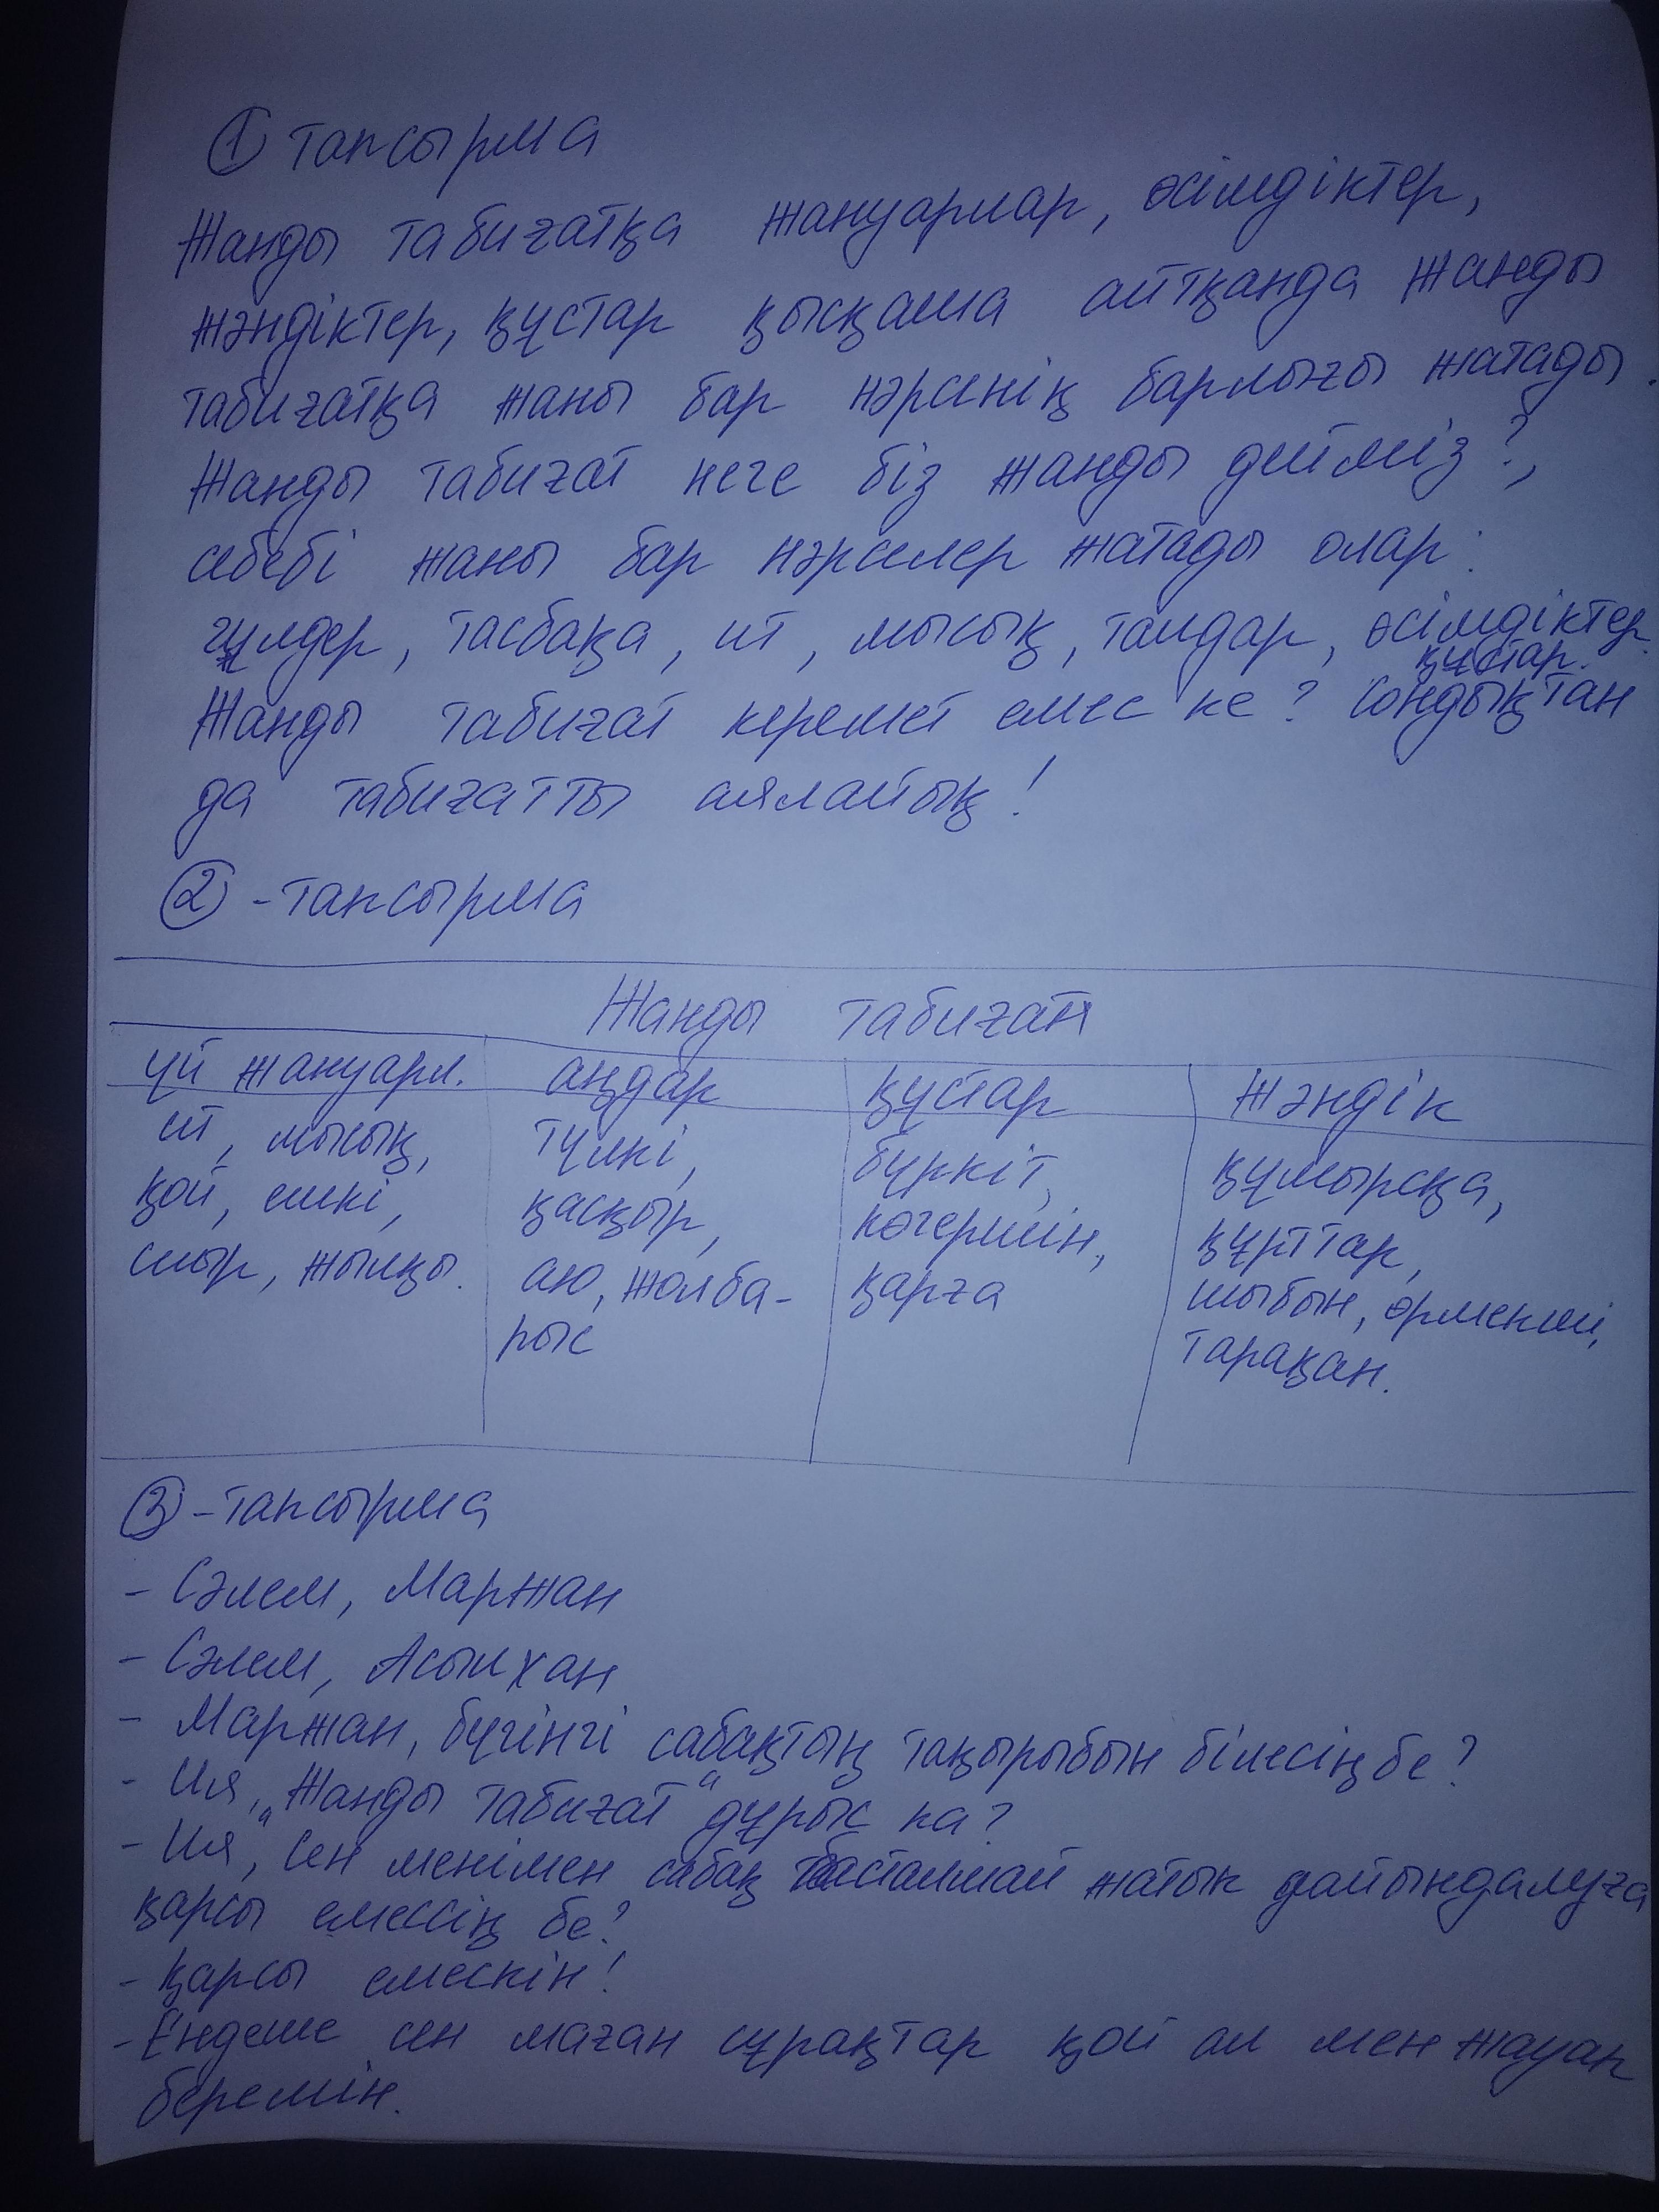 ① тапсырма
Жанды табиғатқа жануарлар, өсімдіктер,
жәндіктер, құстар қысқаша айтқанда жанды
табиғатқа жаны бар нәрсенің барлығы жатады.
Жанды табиғат неге біз жанды дейміз?,
себебі жаны бар нәрселер жатады олар:
гүлдер, тасбақа, ит, мысық, талдар, өсімдіктер.
құстар.
Жанды табиғат керемет емес пе? Сондықтан
да табиғатты аялайық!
② -тапсырма
Жанды табиғат
үй жануарл. аңдар құстар Жәндік
ит, мысық, түлкі, бүркіт, құмырсқа,
қой, ешкі, қасқыр, көгершін, құрттар,
сиыр, жылқы. аю, жолба- қарға шыбын, өрмекші,
рыс тарақан.
③ -тапсырма
- Сәлем, Маржан
- Сәлем, Асылхан
- Маржан, бүгінгі сабақтың тақырыбын білесің бе?
- Ия, „Жанды табиғат“ дұрыс па?
- Ия, Сен менімен сабақ басталмай жатып дайындалуға
қарсы емессің бе?
- Қарсы емеспін!
- Ендеше сен маған сұрақтар қой ал мен жауап
беремін.